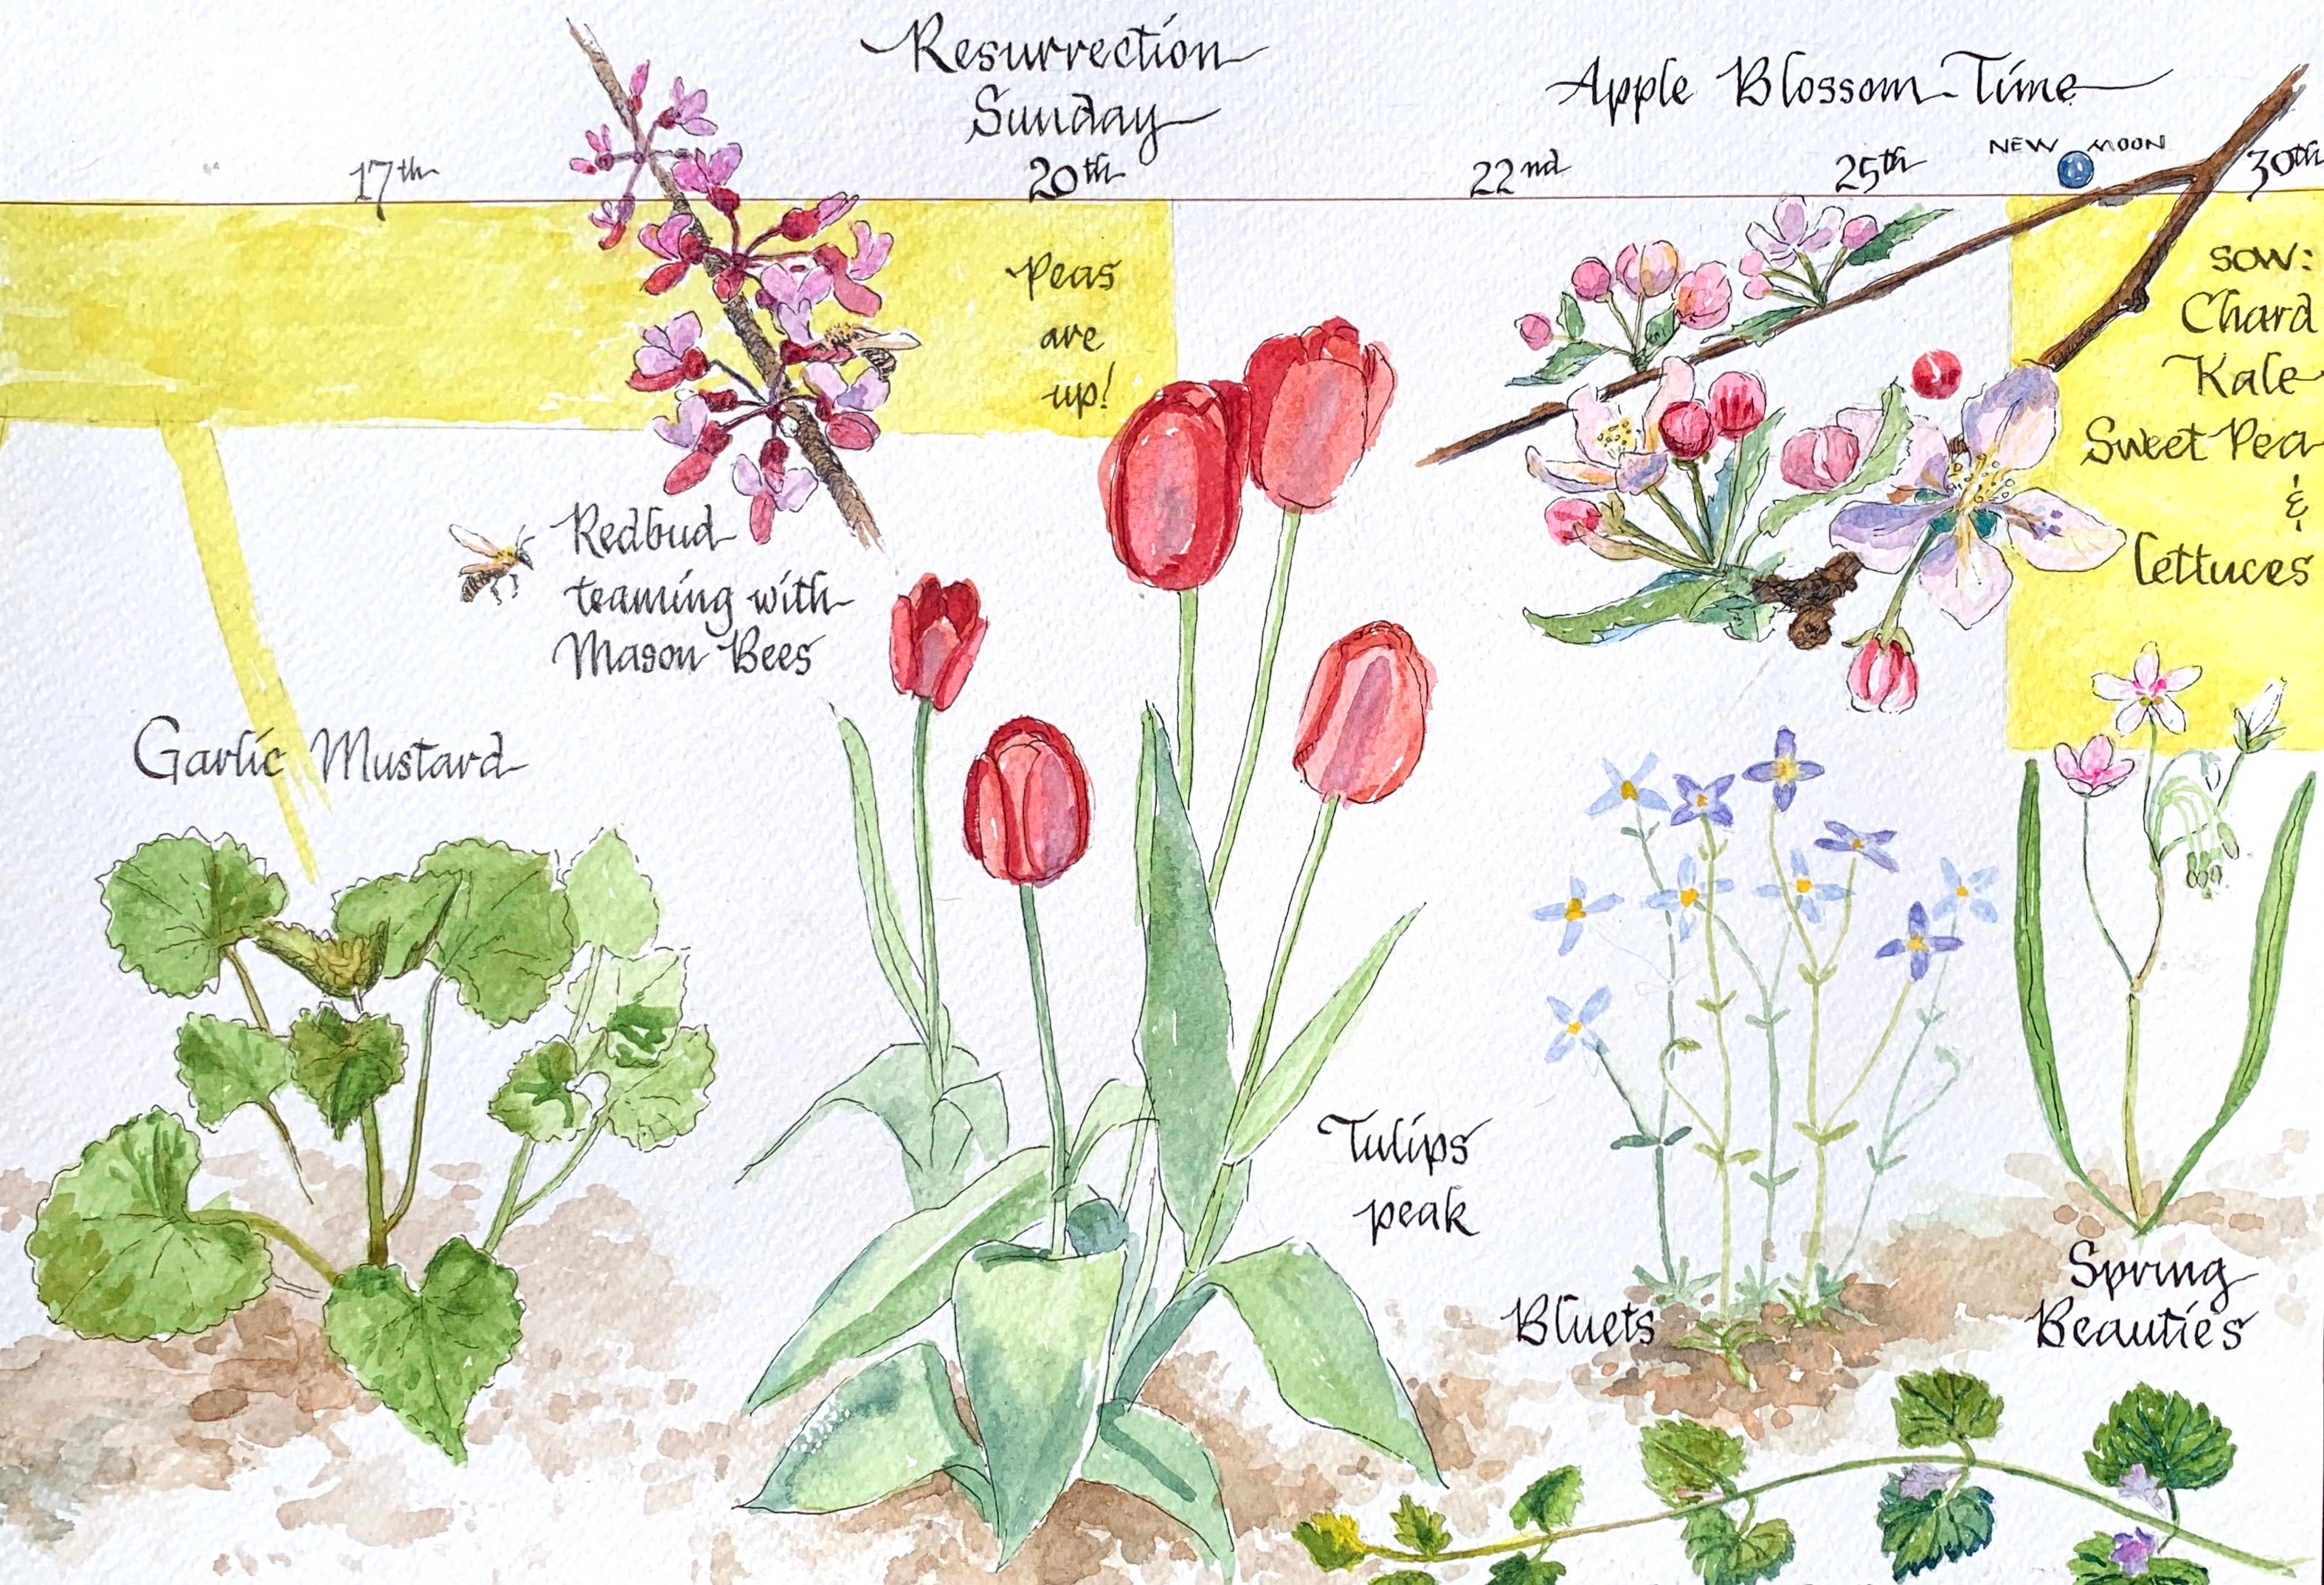 Resurrection
Sunday
Apple Blossom Time
17th
20th
22nd
25th
NEW MOON
30th
Peas
are
up!
SOW:
Chard
Kale
Sweet Pea
&
lettuces
Redbud
teaming with
Mason Bees
Garlic Mustard
Tulips
peak
Bluets
Spring
Beauties